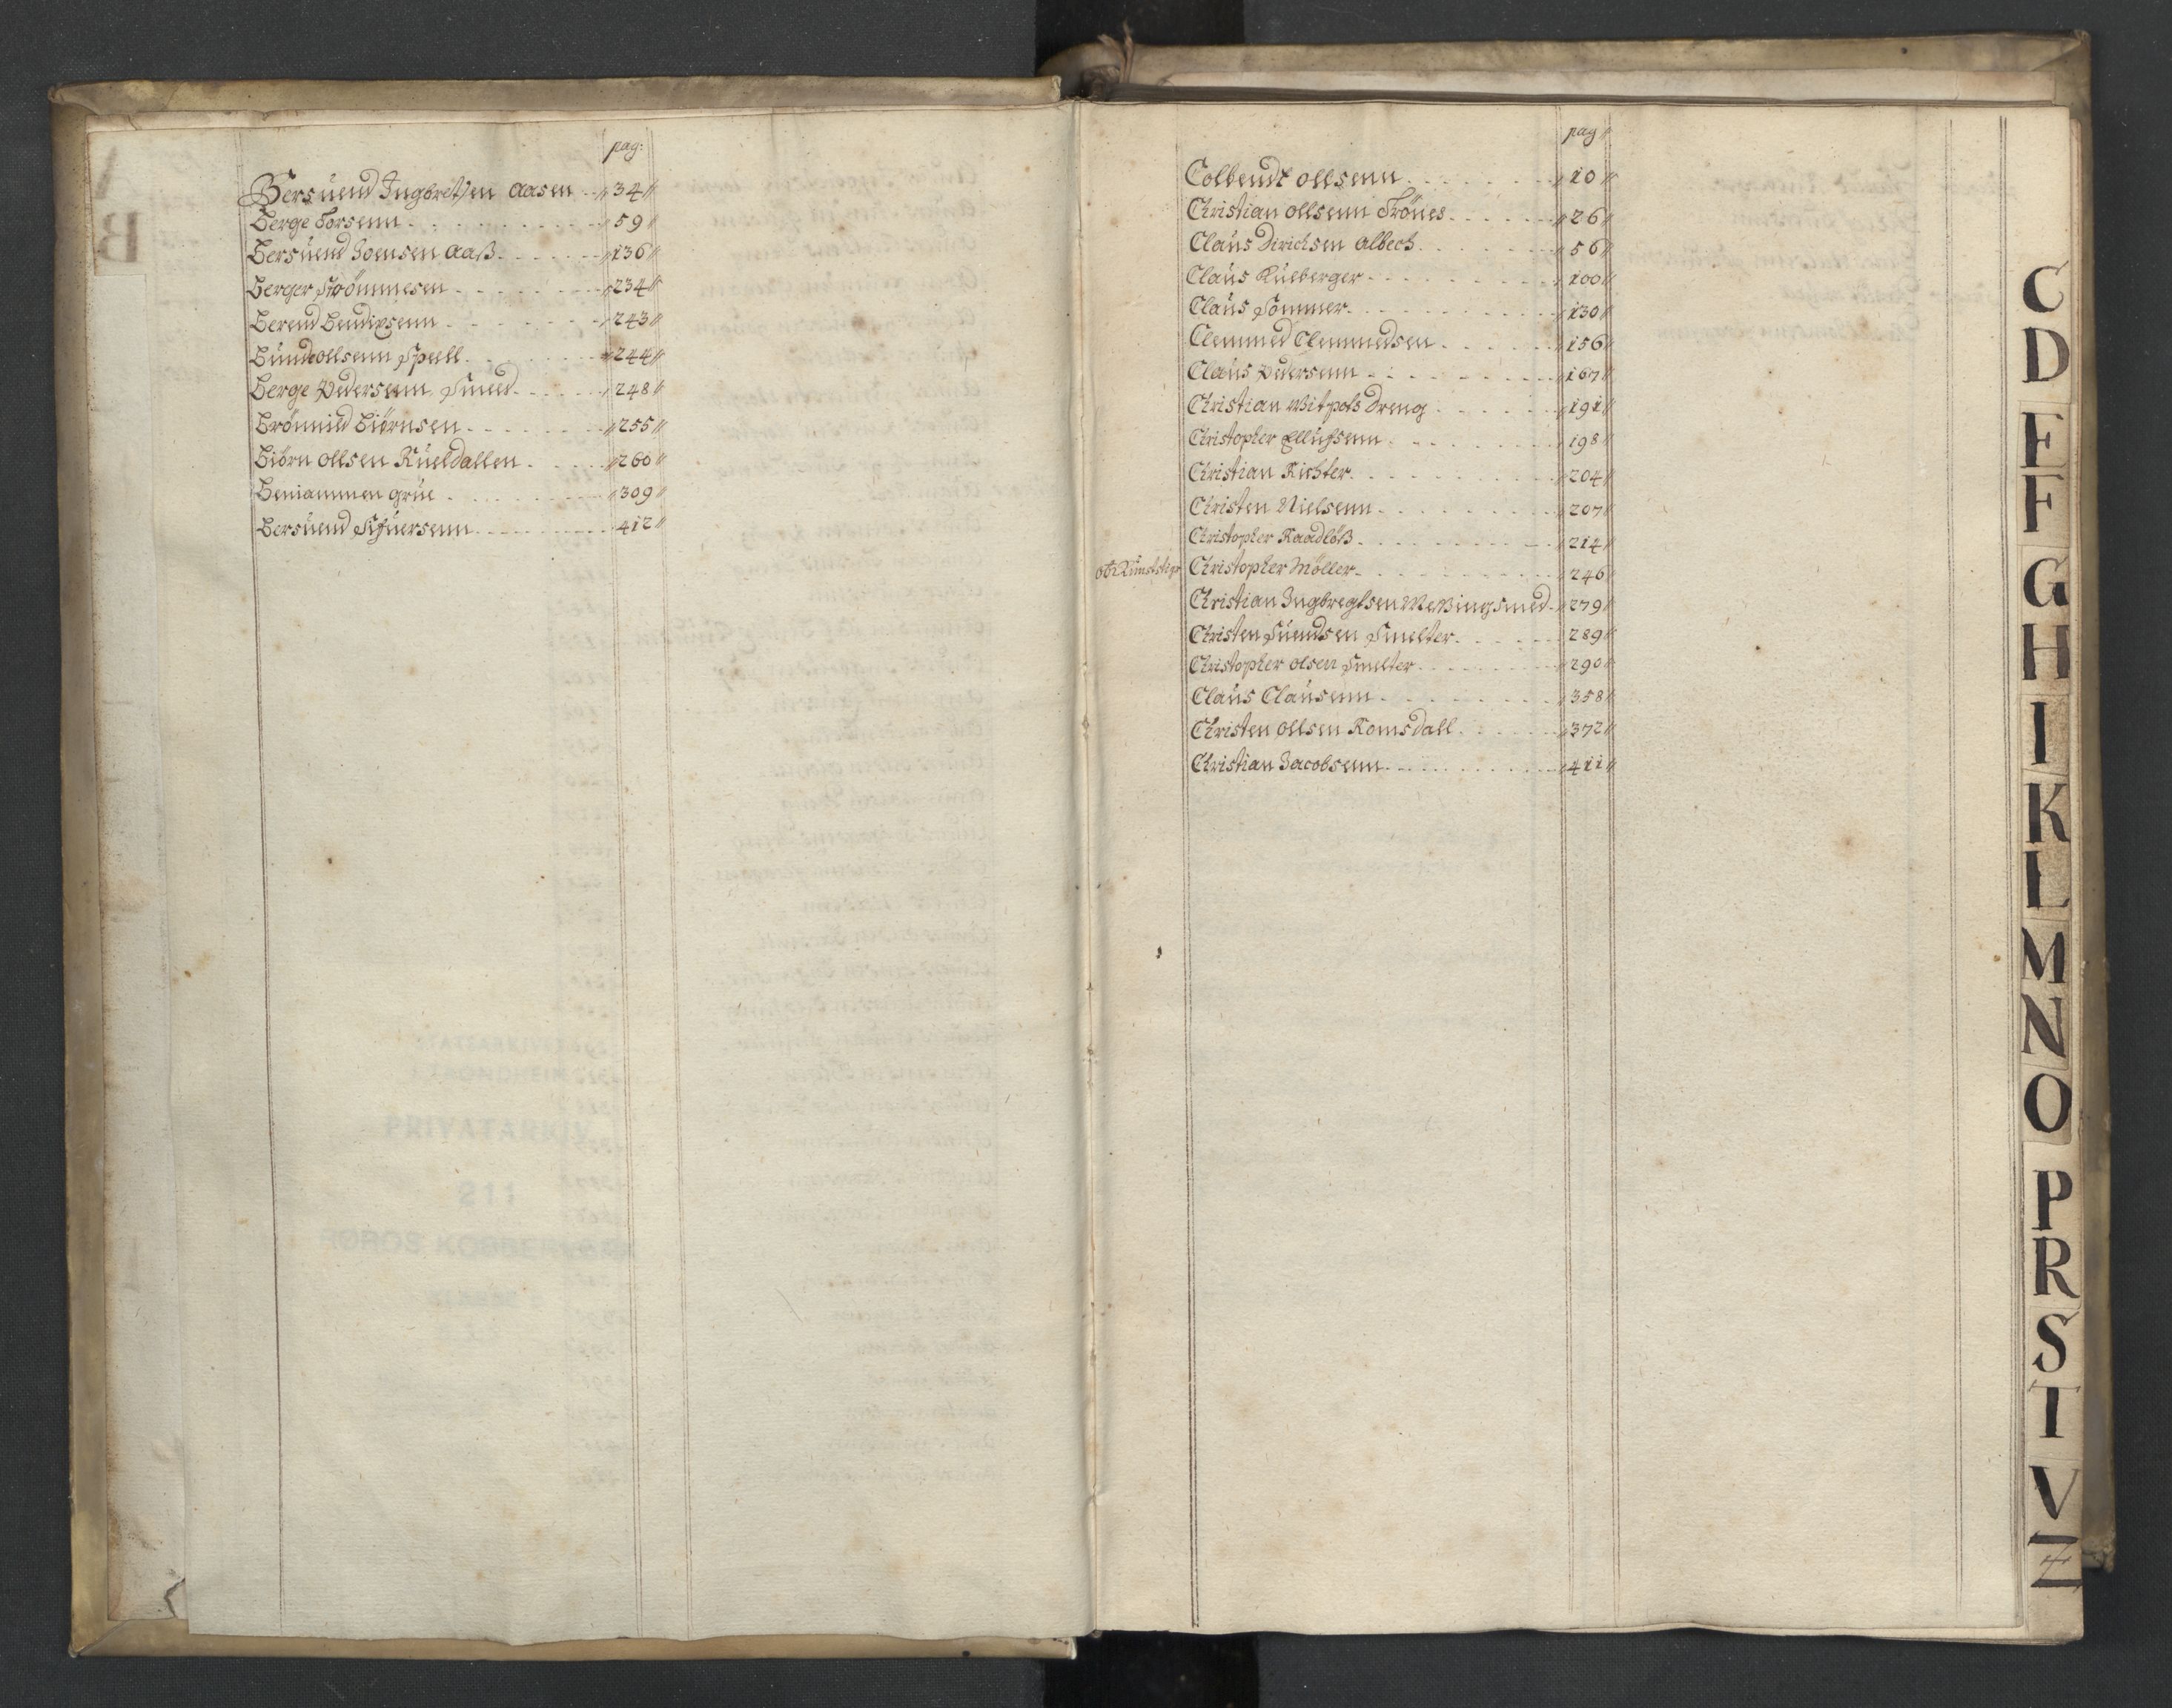 pag:
Bersuend Ingbretsen Aasen 34
Berge Torsenn 59
Bersuend Joensen Aaß 136
Berger Strömmesen 234
Berend Bendixsenn 243
Bünde ollsenn Spell 244
Berge Pedersenn Smed 248
Brönnild Biörnsen 255
Biörn ollsen Küeldallen 260
Beniammen Grüe 309
Bersuend Sifuersenn 412
pag
Colbendt ollsenn 10
Christian ollsenn Trönes 26
Claus Dirichsen Albech 56
Claus Külberger 100
Claus Sommer 130
Clemmed Clemmedsen 156
Claus Pedersenn 167
Christian Witpots Dreng 191
Christopher Ellufsenn 198
Christian Richter 204
Christen Nielsenn 207
Christopher Raadlöß 214
Christopher Möller 246
Christian Ingbregtsen Meßingsmed 279
Christen Suendsen Smelter 289
Christopher olsen Smelter 290
Claus Clausenn 358
Christen ollsen Romsdall 372
Christian Jacobsenn 411
C
D
E
F
G
H
I
K
L
M
N
O
P
R
S
T
V
Z
PRIVATARKIV
211